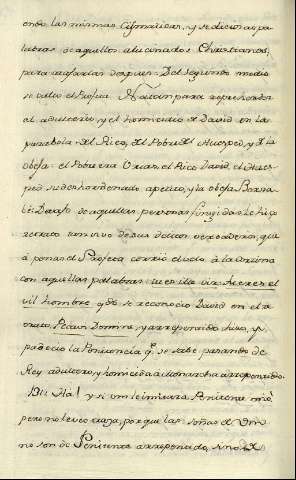 endo las mismas Cismaticas, y se dicen as pa
labras de aquellos alucinados Christianos,
para refutarlas despues. Del segundo modo
se valio el Profeta Natan para reprehender
el adulterio, y el homicidio de David en la
parabola del Rico, del Pobre, del Huesped, y de la
obeja: el Pobre era Urias, el Rico David, el Hues
ped su deshordenado apetito, y la obeja Bersa
be: De rasgos de aquellas personas fingidas le hizo
retrato tan vivo de sus delitos verdaderos, que
á penas el Profeta corrió el velo á la
con aquellas palabras: tu es ille vir: tu eres el
vil hombre qdo se reconocio David en el re
trato, Peccavi Domino, y arrepentido hizo, y
padecio la Penitencia q.e se sabe, pasando de
Rey adultero, y homicida à Monarcha arrepentido.
y si un le imitara Penitente mio
pero no le veo traza, porque las señas de Vm
no son de Penitente arrepentido, sino de